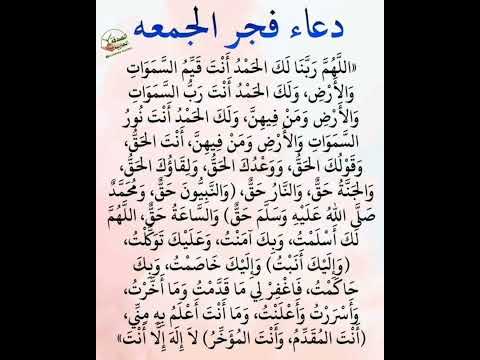 دعاء فجر الجمعه
«اللَّهُمَّ رَبَّنَا لَكَ الحَمْدُ أَنْتَ قَيِّمُ السَّمَوَاتِ
وَالأَرْضِ، وَلَكَ الحَمْدُ أَنْتَ رَبُّ السَّمَوَاتِ
وَالأَرْضِ وَمَنْ فِيهِنَّ، وَلَكَ الحَمْدُ أَنْتَ نُورُ
السَّمَوَاتِ وَالأَرْضِ وَمَنْ فِيهِنَّ، أَنْتَ الحَقُّ،
وَقَوْلُكَ الحَقُّ، وَوَعْدُكَ الحَقُّ، وَلِقَاؤُكَ الحَقُّ،
وَالجَنَّةُ حَقٌّ، وَالنَّارُ حَقٌّ، (وَالنَّبِيُّونَ حَقٌّ، وَمُحَمَّدٌ
صَلَّى اللهُ عَلَيْهِ وَسَلَّمَ حَقٌّ) وَالسَّاعَةُ حَقٌّ، اللَّهُمَّ
لَكَ أَسْلَمْتُ، وَبِكَ آمَنْتُ، وَعَلَيْكَ تَوَكَّلْتُ،
(وَإِلَيْكَ أَنَبْتُ) وَإِلَيْكَ خَاصَمْتُ، وَبِكَ
حَاكَمْتُ، فَاغْفِرْ لِي مَا قَدَّمْتُ وَمَا أَخَّرْتُ،
وَأَسْرَرْتُ وَأَعْلَنْتُ، وَمَا أَنْتَ أَعْلَمُ بِهِ مِنِّي،
(أَنْتَ المُقَدِّمُ، وَأَنْتَ المُؤَخِّرُ) لاَ إِلَهَ إِلَّا أَنْتَ»